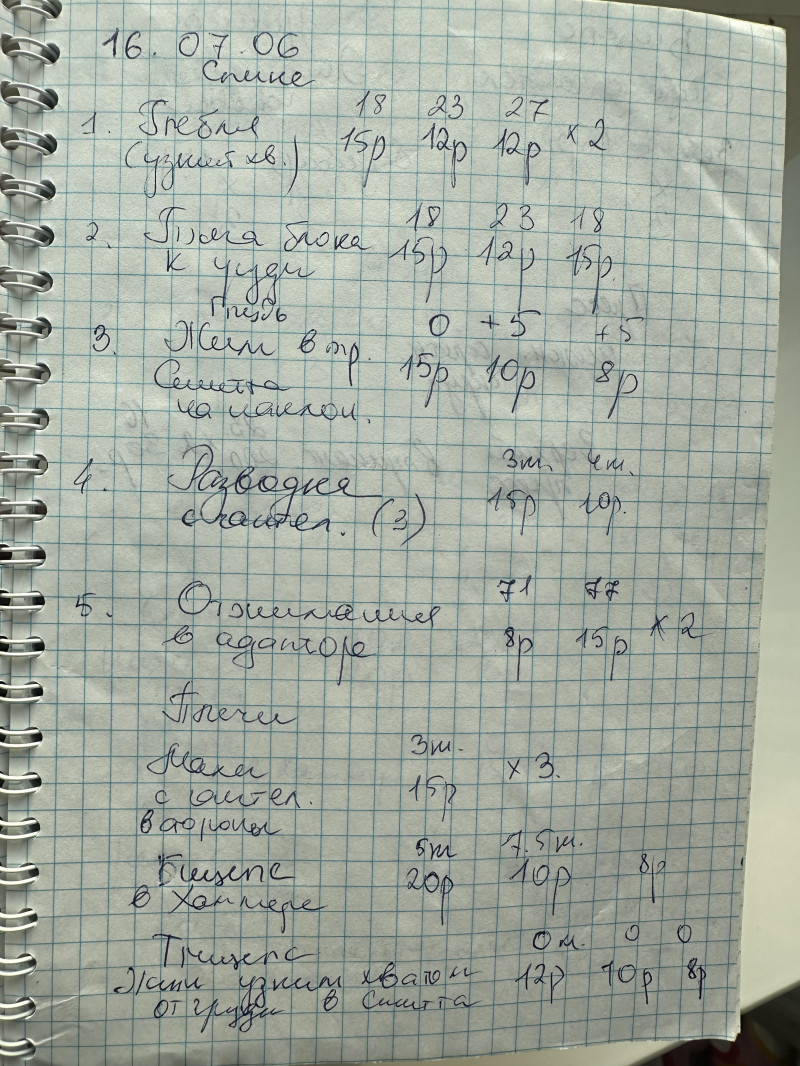 16.07.06
Спина
18 23 27
1. Гребля 15р 12р 12р х 2
(узкий хв.)
18 23 18
2. Тяга блока 15р 12р 15р.
к груди
Грудь
0 +5 +5
3. Жим в тр. 15р 10р 8р
Смитта
на наклон.
3т. 4т.
4. Разводка 15р 10р.
с гантел. (3)
71 77
5. Отжимания
в 8р 15р х 2
Плечи
3т.
Махи 15р х 3.
с гантел.
в стороны
5т 7.5т.
Бицепс 20р 10р 8р
в Хаммере
Трицепс 0 0
Жим узким хватом 12р 10р 8р
от груди в Смитта